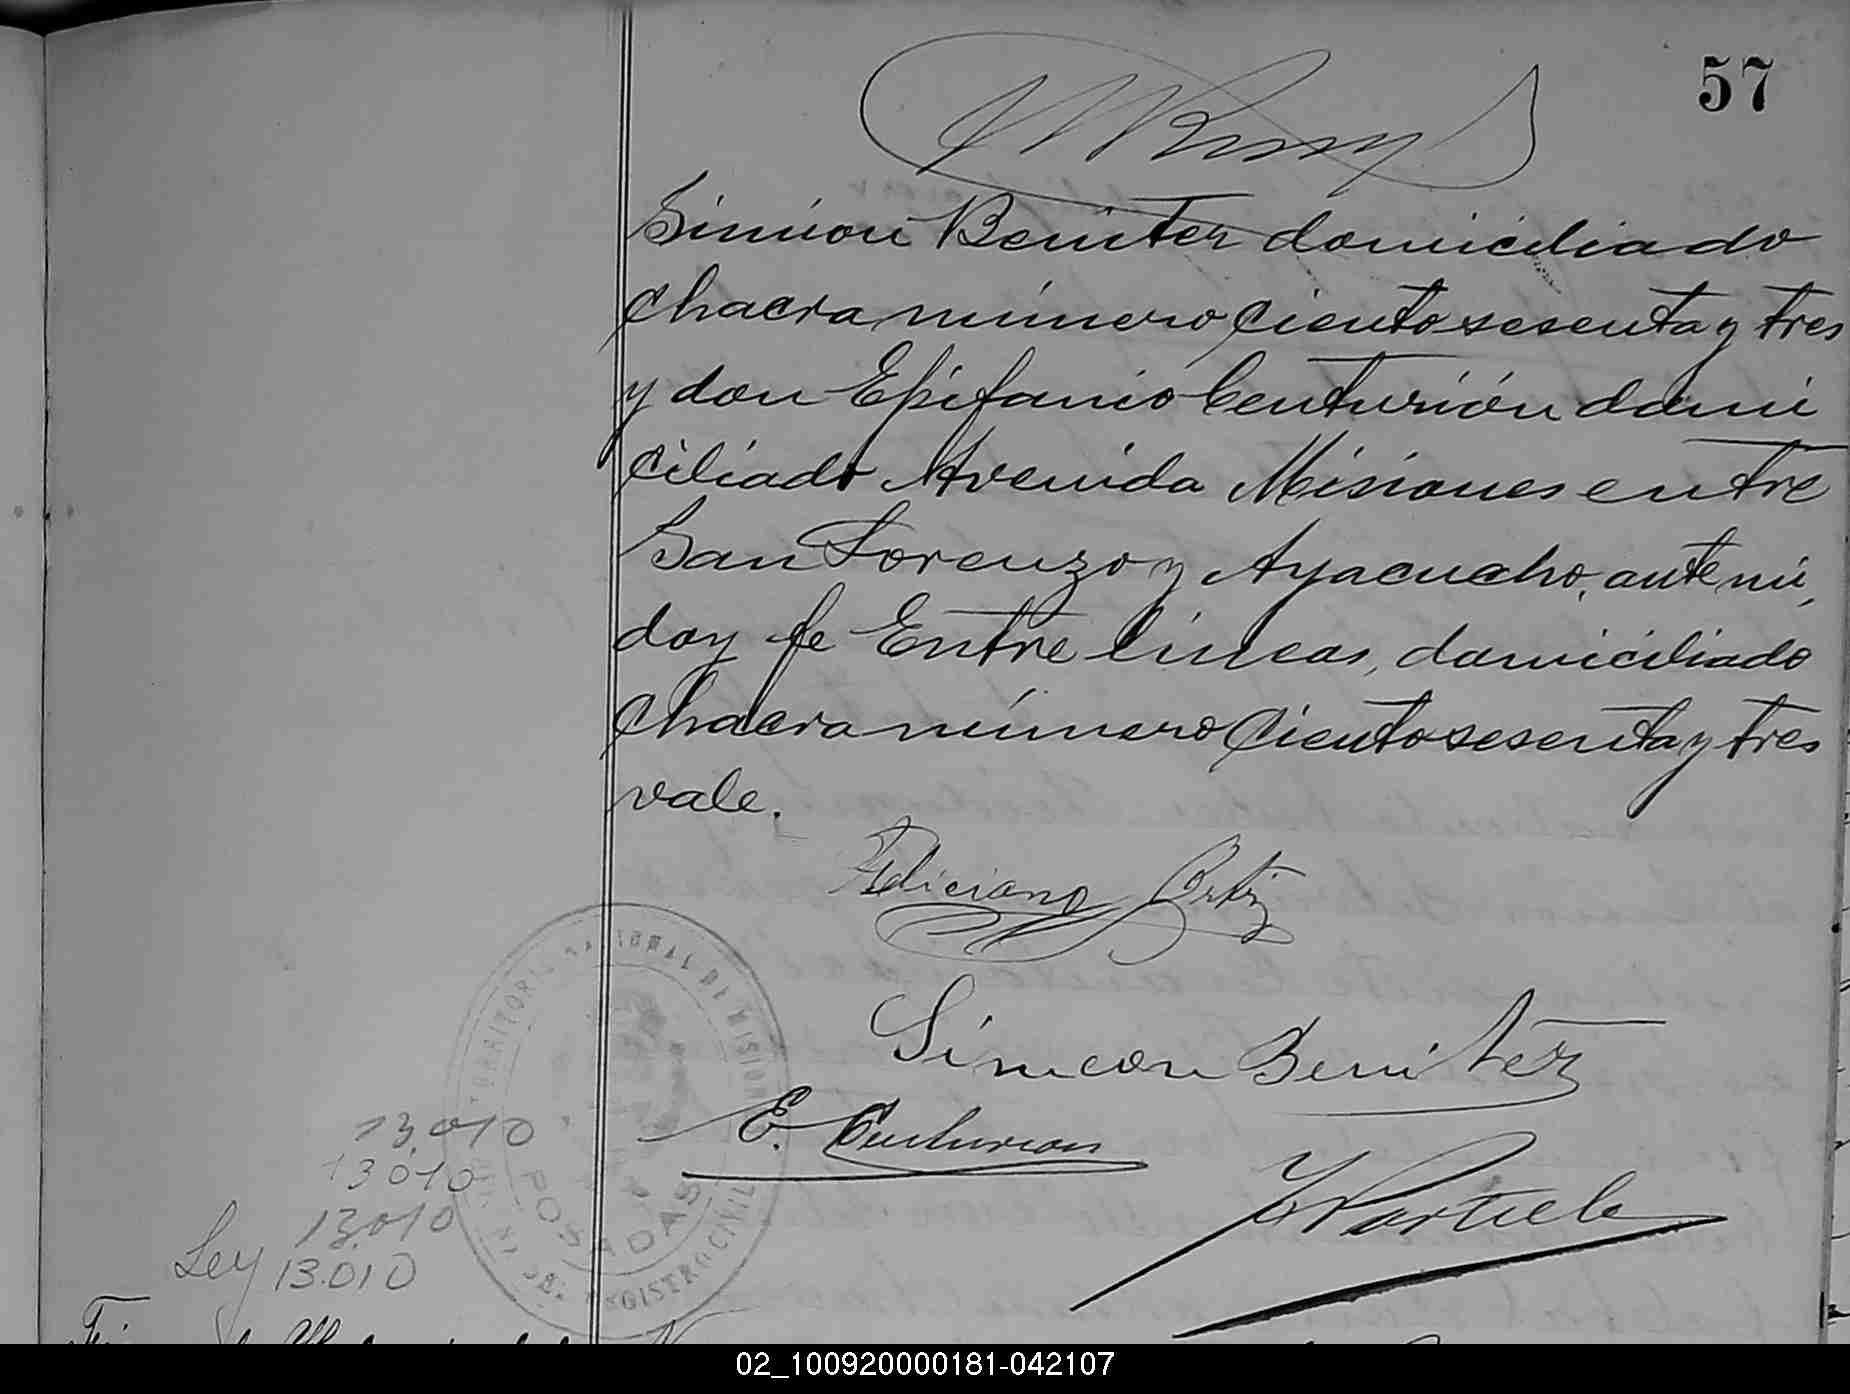 57
Simeon Benitez domiciliado
chacra número ciento sesenta y tres
y don Epifanio Centurión domi
ciliado Avenida Misiones entre
San Lorenzo y Ayacucho, ante mi,
doy fe Entre lineas, domiciliado
chacra número ciento sesenta y tres
vale.
Feliciano Ortiz
Simeon Benitez
E. Centurion
TERRITORIO NACIONAL DE MISIONES
POSADAS
REGISTRO CIVIL
13,010
13010
13.010
Ley 13.010
02_100920000181-042107